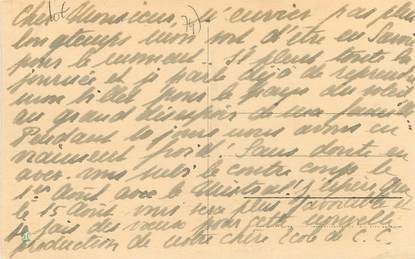 Cher Monsieur, n'enviez pas plus
longtemps mon sort d'être en Savoie
pour le moment. Il pleut toute la
journée et je parle déjà de reprendre
mon billet pour le pays du soleil
au grand désespoir de ma famille
Pendant 10 jours nous avons eu
vraiment froid! Sans doute en
avez-vous subi le contre coup le
1er Août avec le Mistral! J'espère que
le 15 Août vous sera plus favorable et
je fais des vœux pour cette nouvelle
production de notre chère Ecole de C.C.